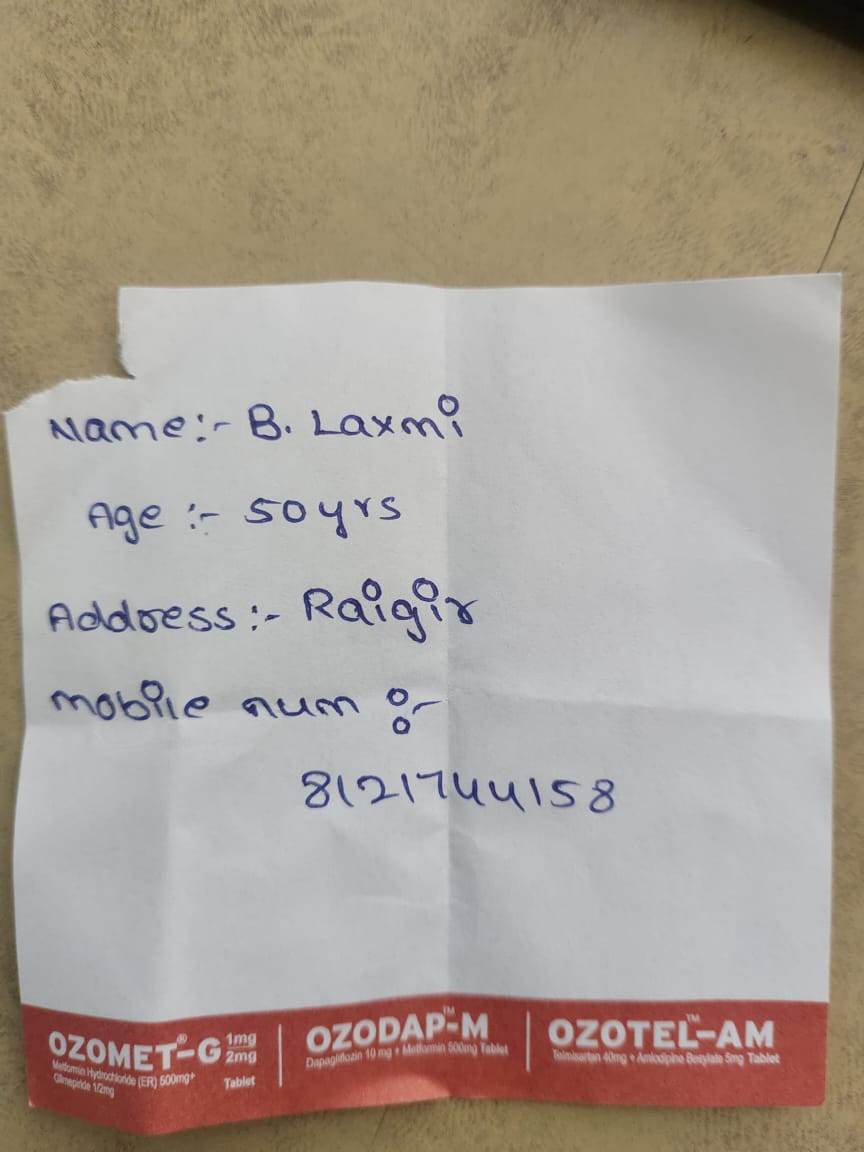 Name:- B. Laxmi
Age :- 50 yrs
Address :- Raigir
mobile num :-
8121744158
OZOMET®-G 1mg 2mg
Metformin Hydrochloride (ER) 500mg+
Glimepiride 1/2mg
Tablet
OZODAP™-M
Dapagliflozin 10 mg + Metformin 500mg Tablet
OZOTEL™-AM
Telmisartan 40mg + Amlodipine Besylate 5mg Tablet